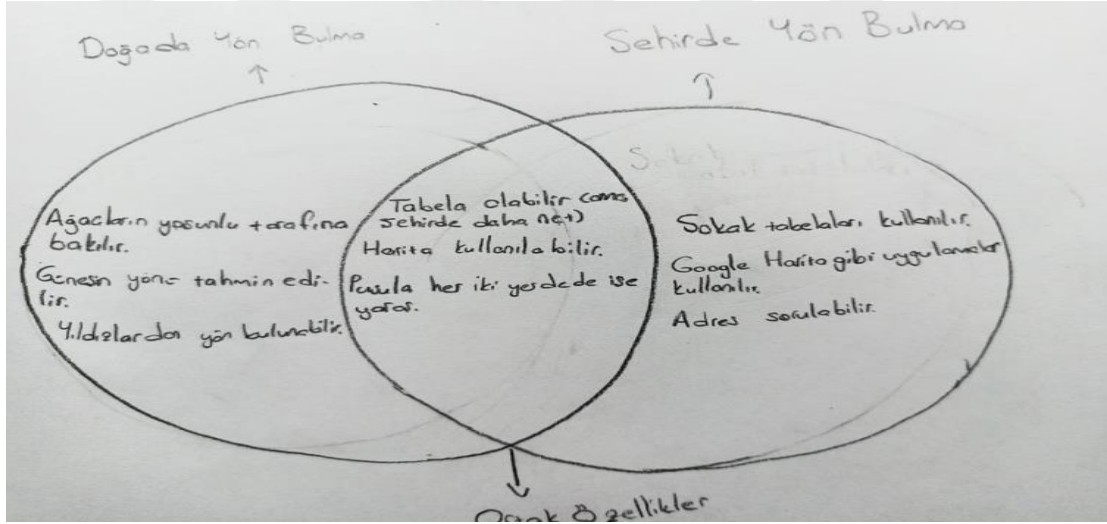 Doğada Yön Bulma
Sehirde Yön Bulma
Ağacların yosunlu tarafına
bakılır.
Günesin yönü tahmin edi-
lir.
Yıldızlardan yön bulunabilir.
Tabela olabilir (ama
sehirde daha net)
Harita kullanılabilir.
Pusula her iki yerdede ise
yarar.
Sokak
Sokak tabelaları kullanılır.
Google Harita gibi uygulamalar
kullanılır.
Adres sorulabilir.
Ortak Özellikler